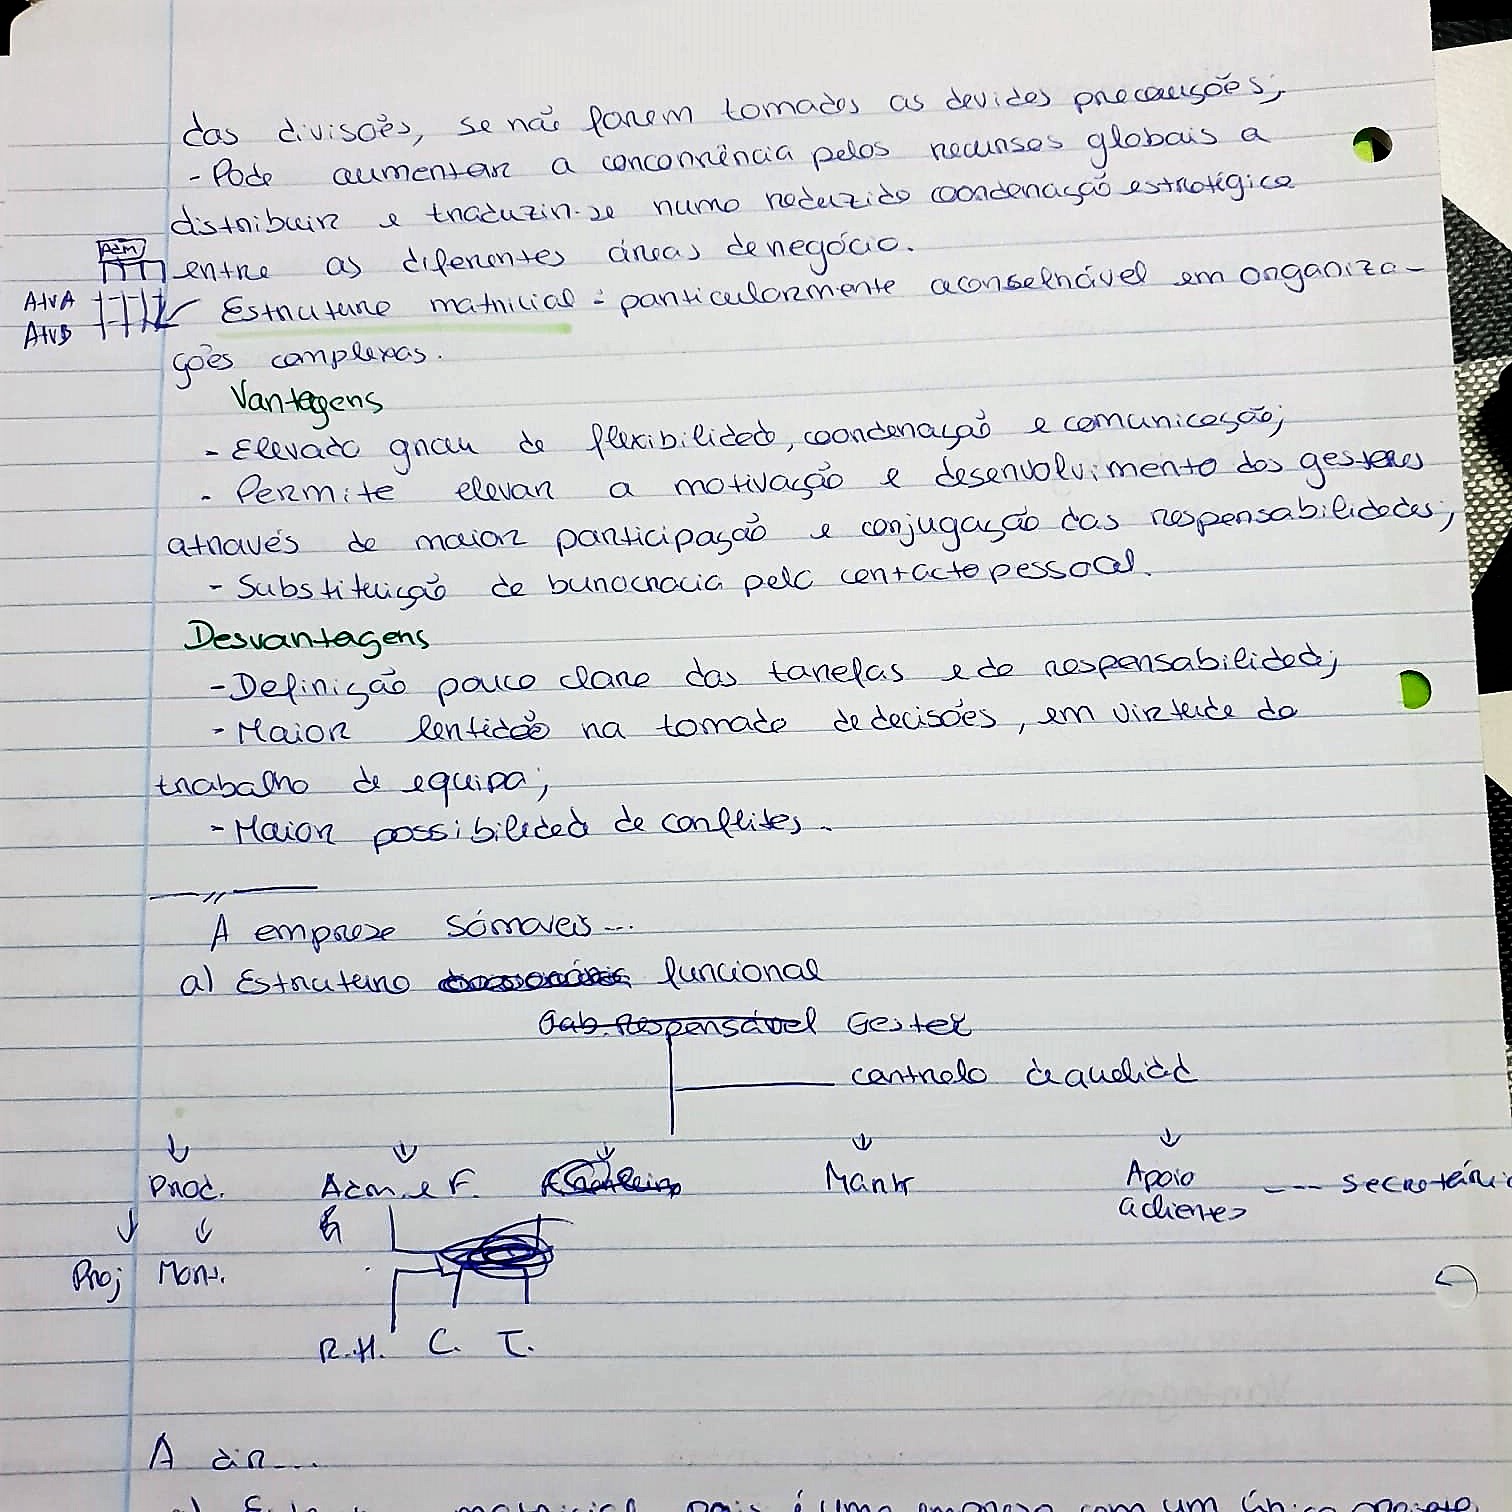 das divisões, se não forem tomados as devidas precauções;
- Pode aumentar a concorrência pelos recursos globais a
distribuir e traduzir-se numa reduzida coordenação estratégica
Adm
entre as diferentes áreas de negócio.
AtvA
Estrutura matricial - particularmente aconselhável em organiza-
AtvB
ções complexas.
Vantagens
- Elevado grau de flexibilidade, coordenação e comunicação;
- Permite elevar a motivação e desenvolvimento dos gestores
através de maior participação e conjugação das responsabilidades;
- Substituição de burocracia pelo contacto pessoal.
Desvantagens
- Definição pouco clara das tarefas e da responsabilidade;
- Maior lentidão na tomada de decisões, em virtude do
trabalho de equipa;
- Maior possibilidade de conflitos.
A empresa Sómoveis...
a) Estrutura funcional
Gab. Responsável Gestor
controlo de qualidad
Prod. Adm. e F. Manut Apoio --- secretária
a clientes
Proj Mont.
R.H. C. T.
A air...
matricial, pois é uma empresa com um único projeto